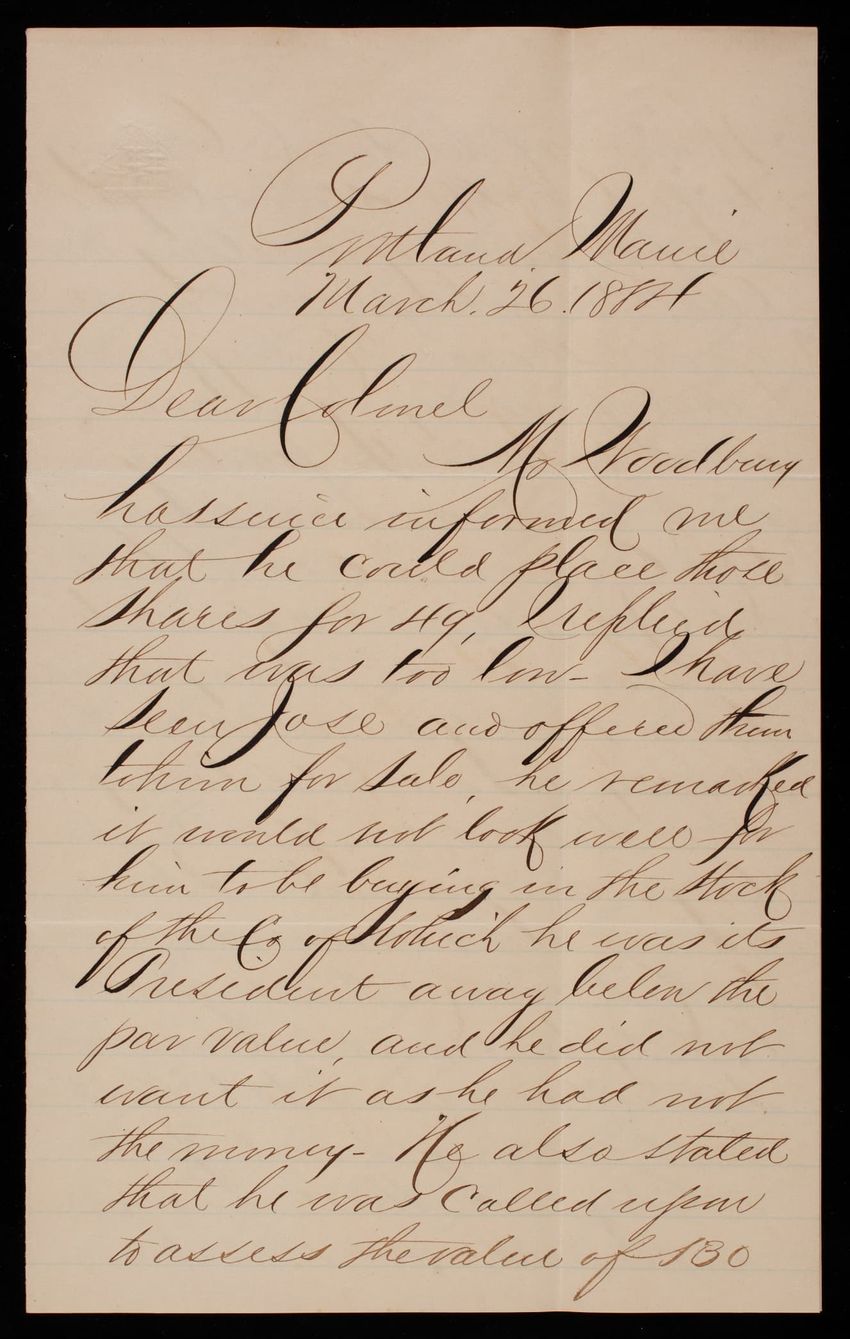 Portland Maine
March. 26. 1884
Dear Colonel
Mr Woodbury
has since informed me
that he could place those
shares for 49, I replied
that was too low - I have
seen Jose and offered them
to him for sale, he remarked
it would not look well for
him to be buying in the stock
of the Co of which he was its
President away below the
par value, and he did not
want it as he had not
the money - He also stated
that he was called upon
to assess the value of 130